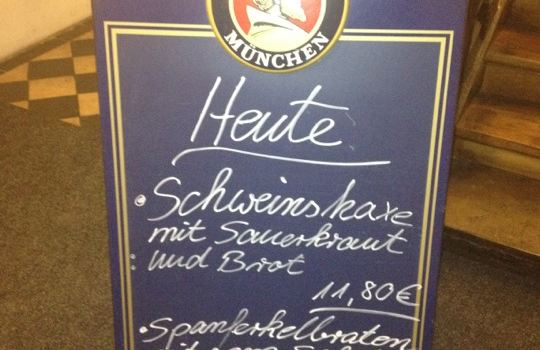 MÜNCHEN
Heute
• Schweinshaxe
mit Sauerkraut
und Brot
11,80 €
• Spanferkelbraten